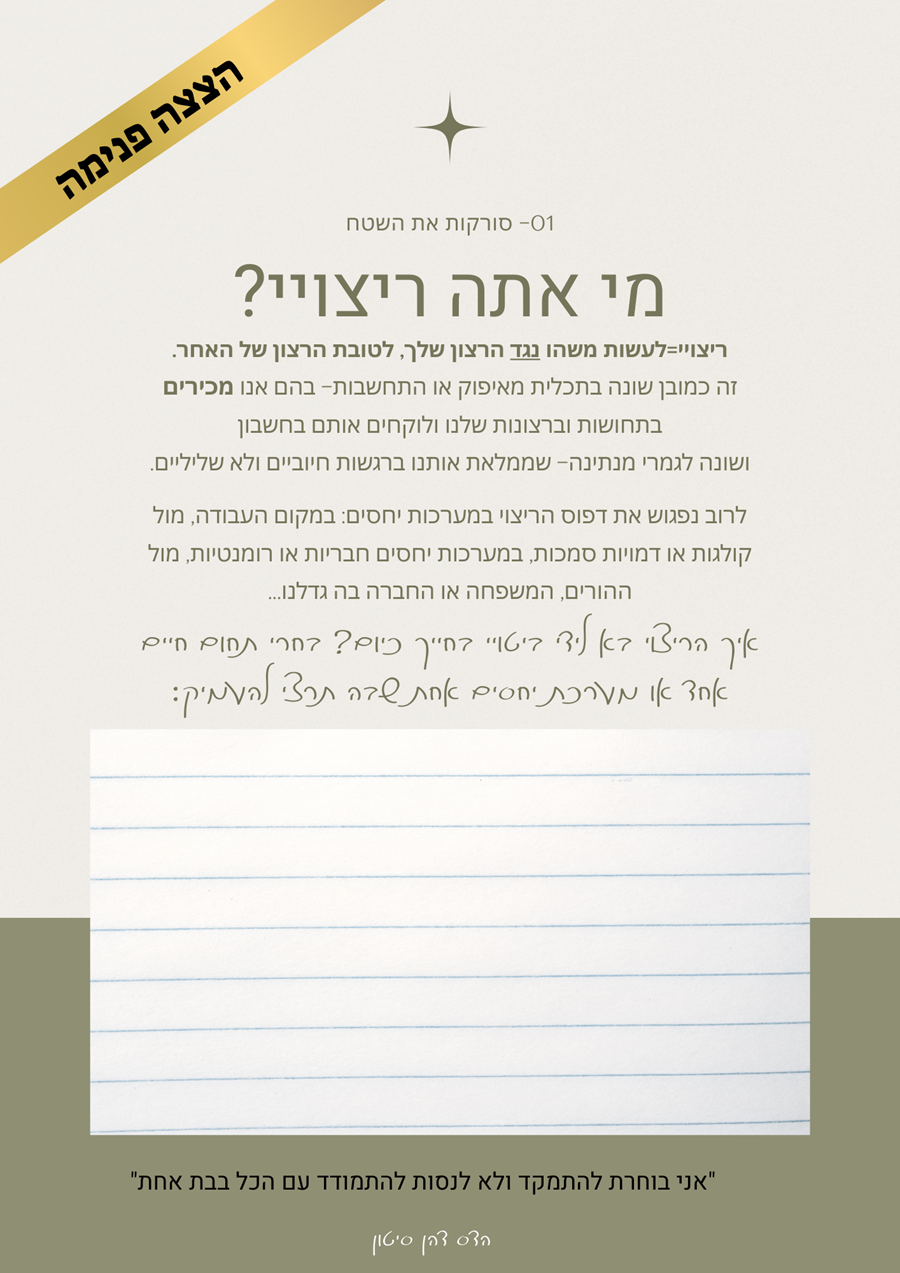 הצצה פנימה
01- סורקות את השטח
מי אתה ריצויי?
ריצויי=לעשות משהו נגד הרצון שלך, לטובת הרצון של האחר.
זה כמובן שונה בתכלית מאיפוק או התחשבות- בהם אנו מכירים
בתחושות וברצונות שלנו ולוקחים אותם בחשבון
ושונה לגמרי מנתינה- שממלאת אותנו ברגשות חיוביים ולא שליליים.
לרוב נפגוש את דפוס הריצוי במערכות יחסים: במקום העבודה, מול
קולגות או דמויות סמכות, במערכות יחסים חבריות או רומנטיות, מול
ההורים, המשפחה או החברה בה גדלנו...
איך הריצוי בא לידי ביטויי בחייך כיום? בחרי תחום חיים
אחד או מערכת יחסים אחת שבה תרצי להעמיק:
"אני בוחרת להתמקד ולא לנסות להתמודד עם הכל בבת אחת"
הדס דהן סיטון